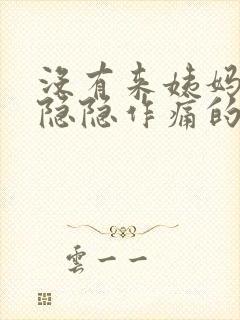 没有来姨妈
隐隐作痛的
雲一一